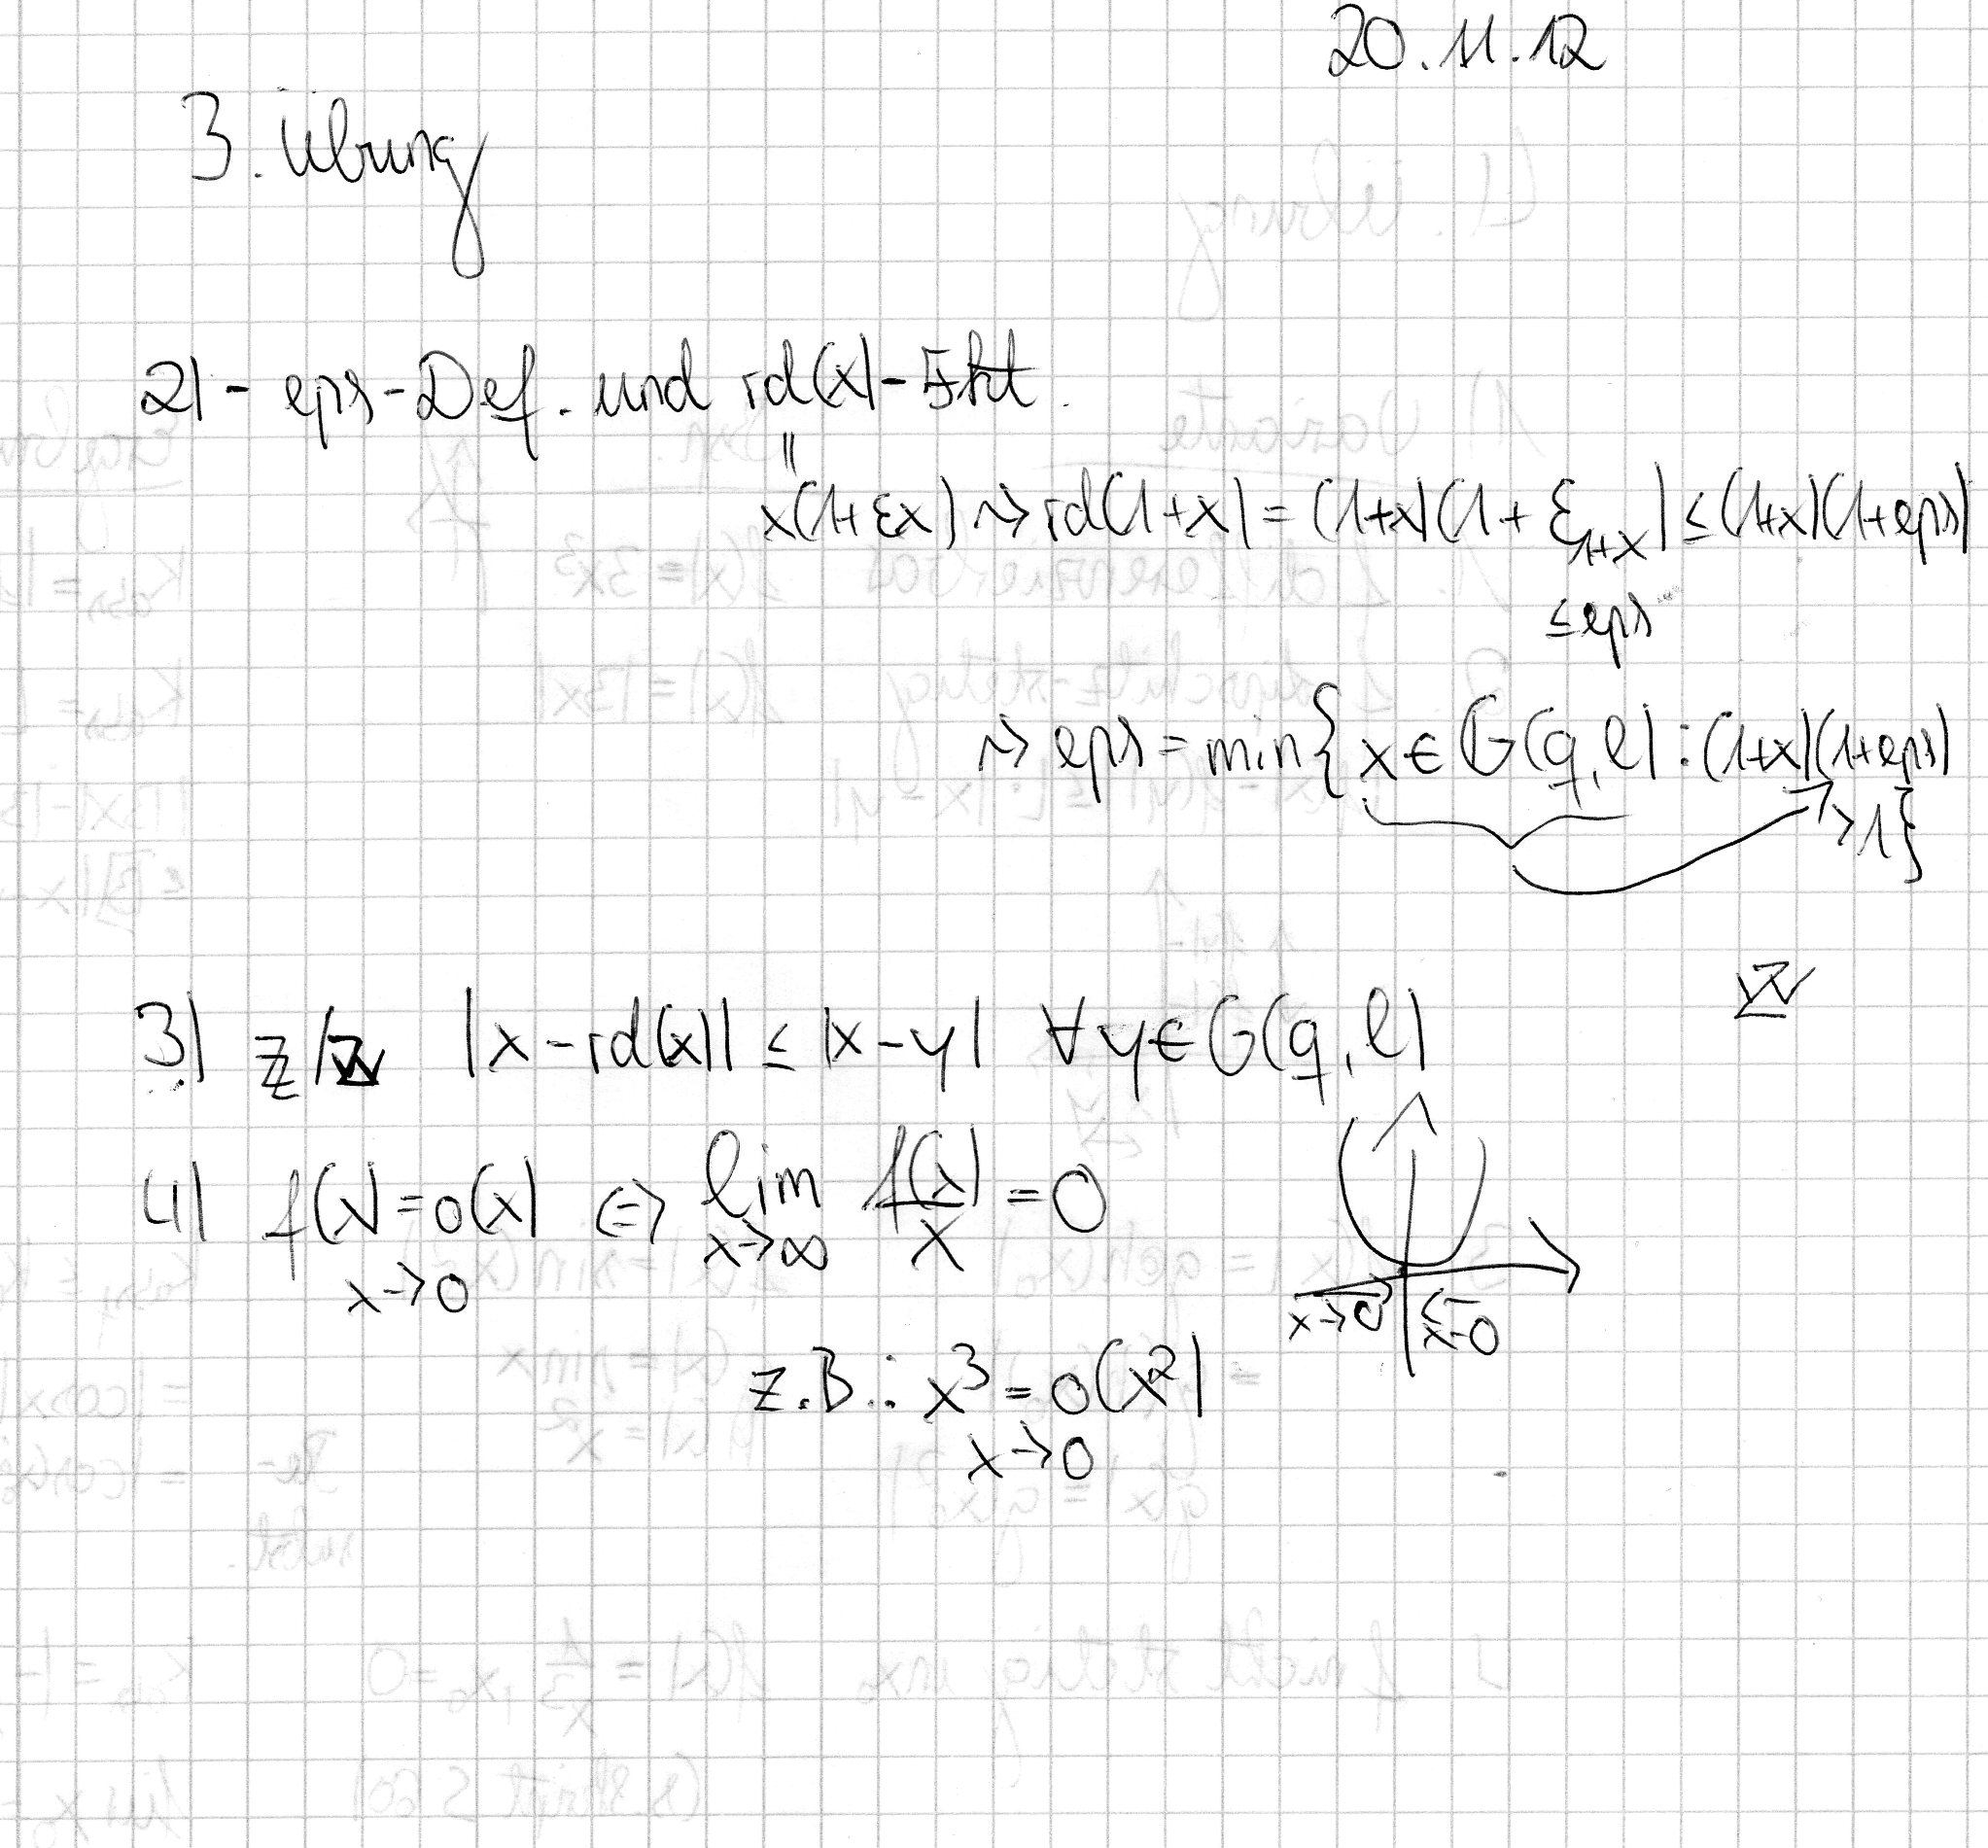 20.11.12
3. Übung
2) - eps-Def. und rd(x)-Fkt.
=
x(1+εx) ⇝ rd(1+x) = (1+x)(1+ε_{1+x}) ≤ (1+x)(1+eps)
≤ eps
⇝ eps = min{ x ∈ G(q,l) : (1+x)(1+eps)
> 1}
3) z/z |x-rd(x)| ≤ |x-y| ∀ y ∈ G(q,l)
4) f(x) = o(x) ⇔ lim f(x)/x = 0
x→0 x→∞
x→0 x←0
z.B.: x³ = o(x²)
x→0